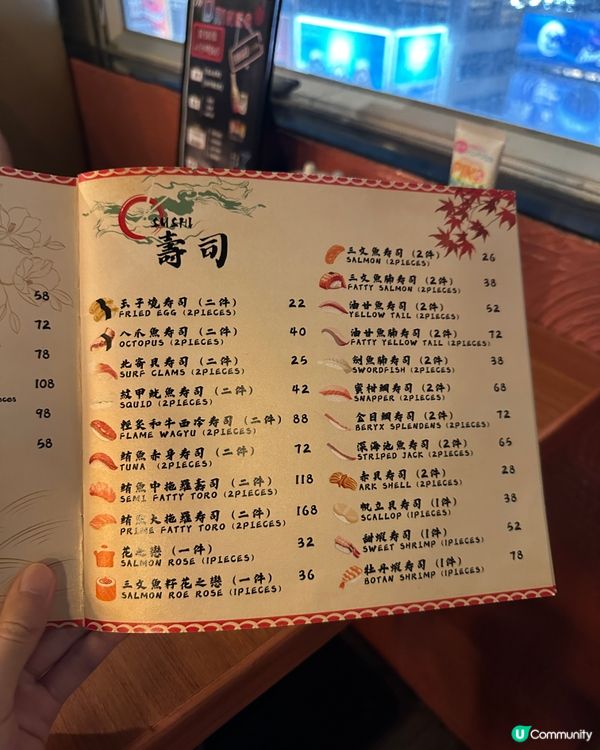 SUSHI
壽司
58
72
78
108
98
58
玉子燒壽司 (二件) 22
FRIED EGG (2PIECES)
八爪魚壽司 (二件) 40
OCTOPUS (2PIECES)
北寄貝壽司 (二件) 25
SURF CLAMS (2PIECES)
紋甲魷魚壽司 (二件) 42
SQUID (2PIECES)
輕炙和牛西冷壽司 (二件) 88
FLAME WAGYU (2PIECES)
鮪魚赤身壽司 (二件) 72
TUNA (2PIECES)
鮪魚中拖羅壽司 (二件) 118
SEMI FATTY TORO (2PIECES)
鮪魚大拖羅壽司 (二件) 168
PRIME FATTY TORO (2PIECES)
花之戀 (一件) 32
SALMON ROSE (1PIECES)
三文魚籽花之戀 (一件) 36
SALMON ROE ROSE (1PIECES)
三文魚壽司 (2件) 26
SALMON (2PIECES)
三文魚腩壽司 (2件) 38
FATTY SALMON (2PIECES)
油甘魚壽司 (2件) 52
YELLOW TAIL (2PIECES)
油甘魚腩壽司 (2件) 72
FATTY YELLOW TAIL (2PIECES)
劍魚腩壽司 (2件) 38
SWORDFISH (2PIECES)
蜜柑鯛壽司 (2件) 68
SNAPPER (2PIECES)
金目鯛壽司 (2件) 72
BERYX SPLENDENS (2PIECES)
深海池魚壽司 (2件) 65
STRIPED JACK (2PIECES)
赤貝壽司 (2件) 28
ARK SHELL (2PIECES)
帆立貝壽司 (1件) 38
SCALLOP (1PIECES)
甜蝦壽司 (1件) 52
SWEET SHRIMP (1PIECES)
牡丹蝦壽司 (1件) 78
BOTAN SHRIMP (1PIECES)
U Community